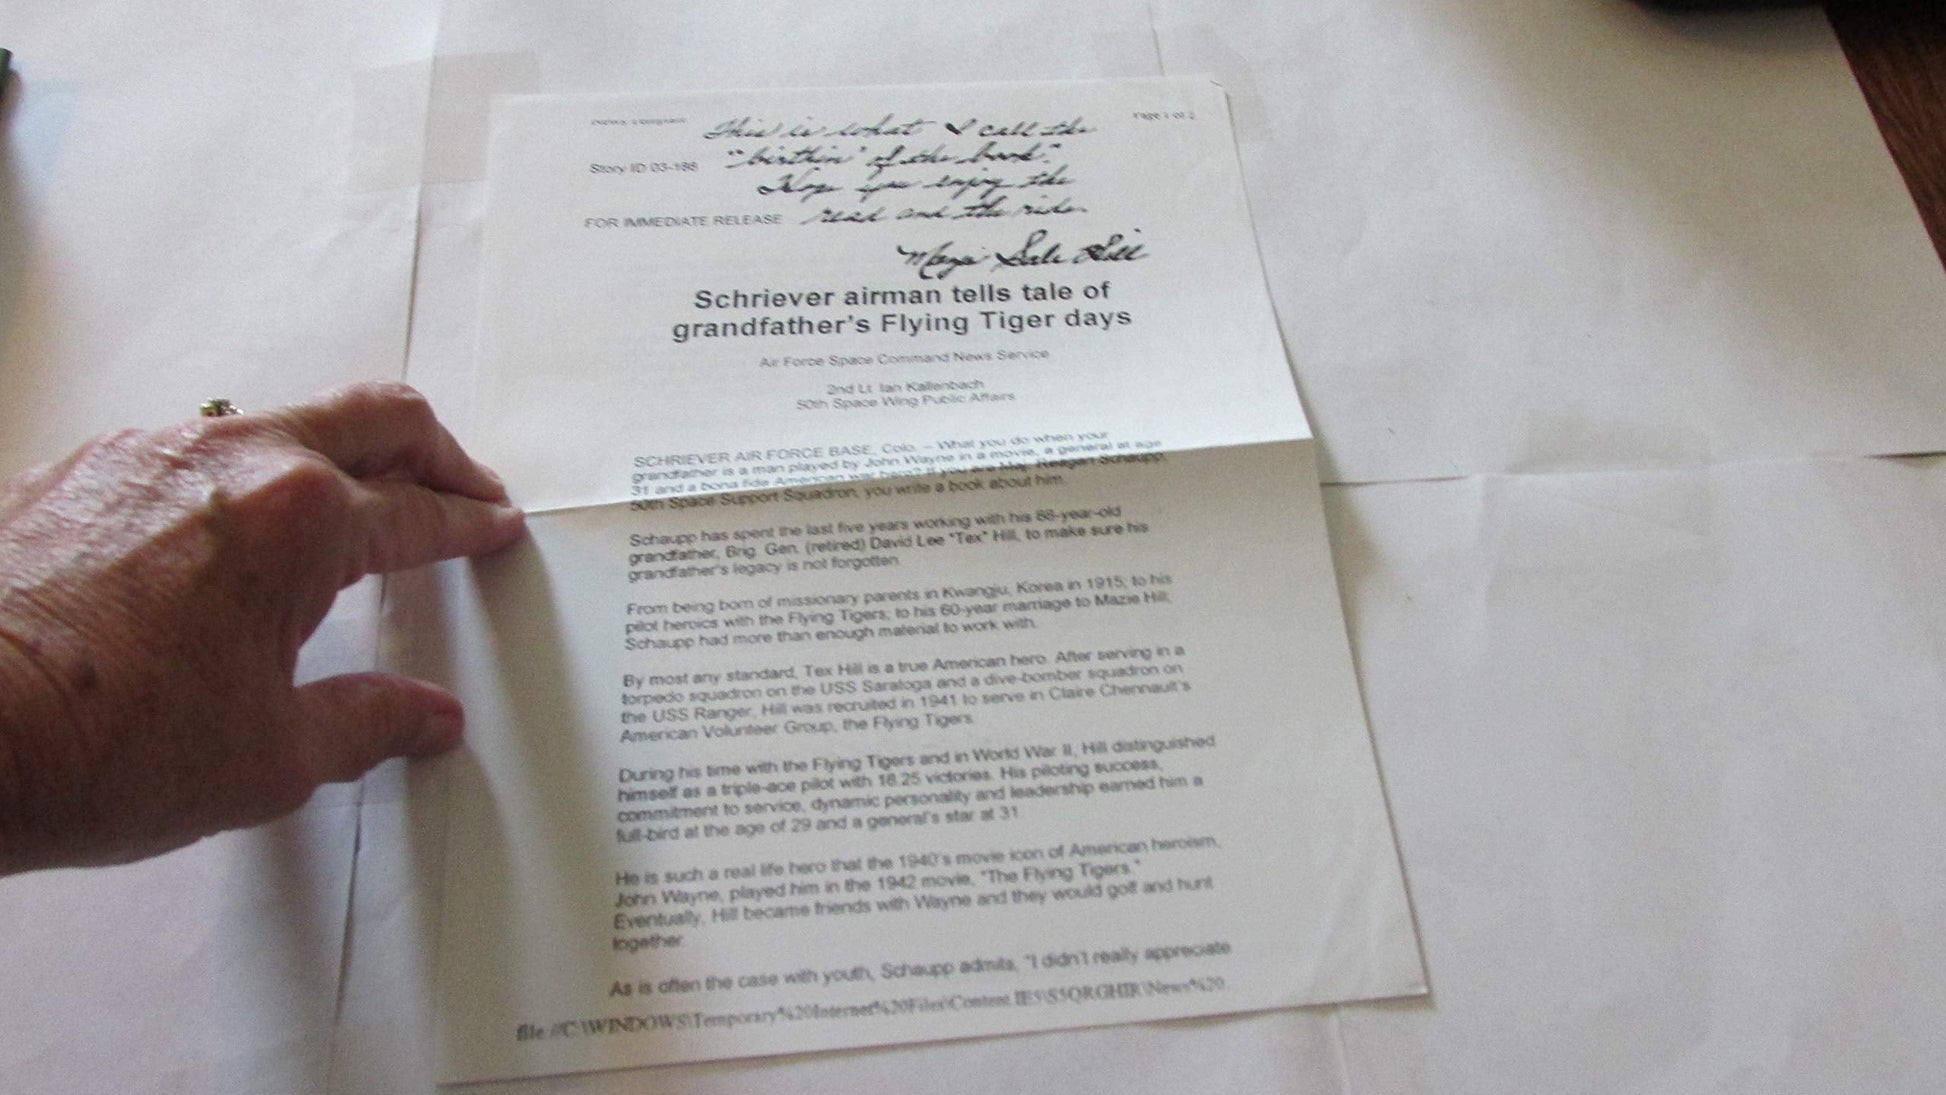 Page 1 of 2
This is what I call the
"birthin' of the book".
Story ID 03-188
Hope you enjoy the
FOR IMMEDIATE RELEASE
read and the ride.
Mazie Sale Hill
Schriever airman tells tale of
grandfather's Flying Tiger days
Air Force Space Command News Service
2nd Lt. Ian Kallenbach
50th Space Wing Public Affairs
SCHRIEVER AIR FORCE BASE, Colo. – What you do when your
grandfather is a man played by John Wayne in a movie, a general at age
31 and a bona fide American war hero? If you are Maj. Reagan Schaupp,
50th Space Support Squadron, you write a book about him.
Schaupp has spent the last five years working with his 88-year-old
grandfather, Brig. Gen. (retired) David Lee "Tex" Hill, to make sure his
grandfather's legacy is not forgotten.
From being born of missionary parents in Kwangju, Korea in 1915; to his
pilot heroics with the Flying Tigers; to his 60-year marriage to Mazie Hill;
Schaupp had more than enough material to work with.
By most any standard, Tex Hill is a true American hero. After serving in a
torpedo squadron on the USS Saratoga and a dive-bomber squadron on
the USS Ranger, Hill was recruited in 1941 to serve in Claire Chennault's
American Volunteer Group, the Flying Tigers.
During his time with the Flying Tigers and in World War II, Hill distinguished
himself as a triple-ace pilot with 18.25 victories. His piloting success,
commitment to service, dynamic personality and leadership earned him a
full-bird at the age of 29 and a general's star at 31.
He is such a real life hero that the 1940's movie icon of American heroism,
John Wayne, played him in the 1942 movie, "The Flying Tigers."
Eventually, Hill became friends with Wayne and they would golf and hunt
together.
As is often the case with youth, Schaupp admits, "I didn't really appreciate
file://C:\WINDOWS\Temporary%20Internet%20Files\Content.IE5\S5QRGHIR\News%20